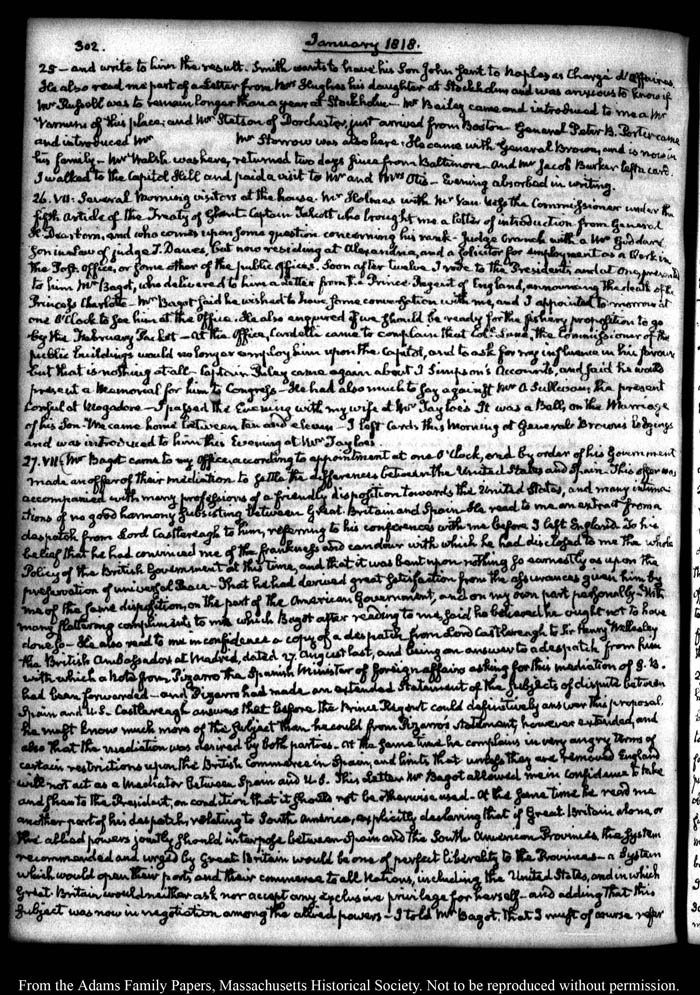 302.
January 1818.
25 – and write to him the result. Smith wants to have his Son John sent to Naples as Chargé d'Affaires.
He also read me part of a Letter from Mrs Hughes his daughter at Stockholm and was anxious to know if
Mr Russell was to remain longer than a year at Stockholm – Mr Bailey came and introduced to me a Mr
Varnum of this place; and Mr Stetson of Dorchester, just arrived from Boston – General Peter B. Porter came
and introduced Mr Mr Storrow was also here. He came with General Brown, and is now in
his family – Mr Walsh was here, returned two days since from Baltimore – And Mr Jacob Barker left a card.
I walked to the Capitol Hill and paid a visit to Mr and Mrs Otis – Evening absorbed in writing.
26. VII. Several Morning visitors at the house. Mr Holmes with Mr Van Ness the Commissioner under the
fifth Article of the Treaty of Ghent. Captain Talcott who brought me a letter of introduction from General
H. Dearborn, and who comes upon some question concerning his rank – Judge Cranch with a Mr Goddard
Son in Law of judge T. Dawes, but now residing at Alexandria, and a solicitor for employment as a Clerk in
the Post Office, or some other of the public offices. Soon after twelve I rode to the Presidents and at One, presented
to him Mr Bagot, who delivered to him a Letter from the Prince Regent of England, announcing the death of the
Princess Charlotte – Mr Bagot said he wished to have some conversation with me, and I appointed to-morrow at
one O'Clock to see him at the Office. He also enquired if we should be ready for the fishery proposition to go
by the February Packet – At the Office, Cardelli came to complain that Colonel Lane, the Commissioner of the
public buildings would no longer employ him upon the Capitol, and to ask for my influence in his favour
but that is nothing at all – Captain Riley came again about J Simpson's Accounts, and said he would
present a Memorial for him to Congress – He had also much to say against Mr A Sullivan, the present
Consul at Mogadore – I passed the Evening with my wife at Mr Tayloe's. It was a Ball, on the Marriage
of his Son. We came home between ten and eleven – I left Cards this Morning at General Brown's lodgings
and was introduced to him this Evening at Mr Tayloe's.
27. VII. Mr Bagot came to my Office, according to appointment at one O'Clock, and by order of his Government
made an offer of their mediation to settle the differences between the United States and Spain. This offer was
accompanied with many professions of a friendly disposition towards the United States, and many intima-
tions of no good harmony subsisting between Great-Britain and Spain. He read to me an extract from a
despatch from Lord Castlereagh to him, referring to his conferences with me before I left England. To his
belief that he had convinced me of the frankness and candour with which he had disclosed to me the whole
Policy of the British Government at this time, and that it was bent upon nothing so earnestly as upon the
preservation of universal Peace – That he had derived great satisfaction from the assurances given him by
me of the same disposition, on the part of the American Government, and on my own part personally – With
many flattering compliments to me which Bagot after reading to me, said he believed he ought not to have
done so – He also read to me in confidence a copy of a despatch from Lord Castlereagh to Sir Henry Wellesley
the British Ambassador at Madrid, dated 27 August last, and being an answer to a despatch from him
with which a Note from Pizarro the Spanish Minister of foreign affairs asking for this mediation of G. B.
had been forwarded – and Pizarro had made an extended Statement of the subjects of dispute between
Spain and U.S. Castlereagh answers that before the Prince Regent could definitively answer this proposal,
he must know much more of the subject than he could from Pizarro's statement, however extended, and
also that the mediation was desired by both parties. At the same time he complains in very angry terms of
certain restrictions upon the British Commerce in Spain, and hints that unless they are removed England
will not act as a Mediator between Spain and U.S. This Letter Mr Bagot allowed me in confidence to take
and shew to the President, on condition that it should not be otherwise used – At the same time he read me
another part of his despatch, relating to South America, explicitly declaring that if Great Britain alone or
the allied powers jointly should interpose between Spain and the South American Provinces, the System
recommended and urged by Great Britain would be one of perfect liberality to the Provinces – a System
which would open their ports and their commerce to all Nations, including the United States, and in which
Great Britain would neither ask nor accept any exclusive privilege for herself – and adding that this
subject was now in negotiation among the allied powers – I told Mr Bagot, that I must of course refer
From the Adams Family Papers, Massachusetts Historical Society. Not to be reproduced without permission.